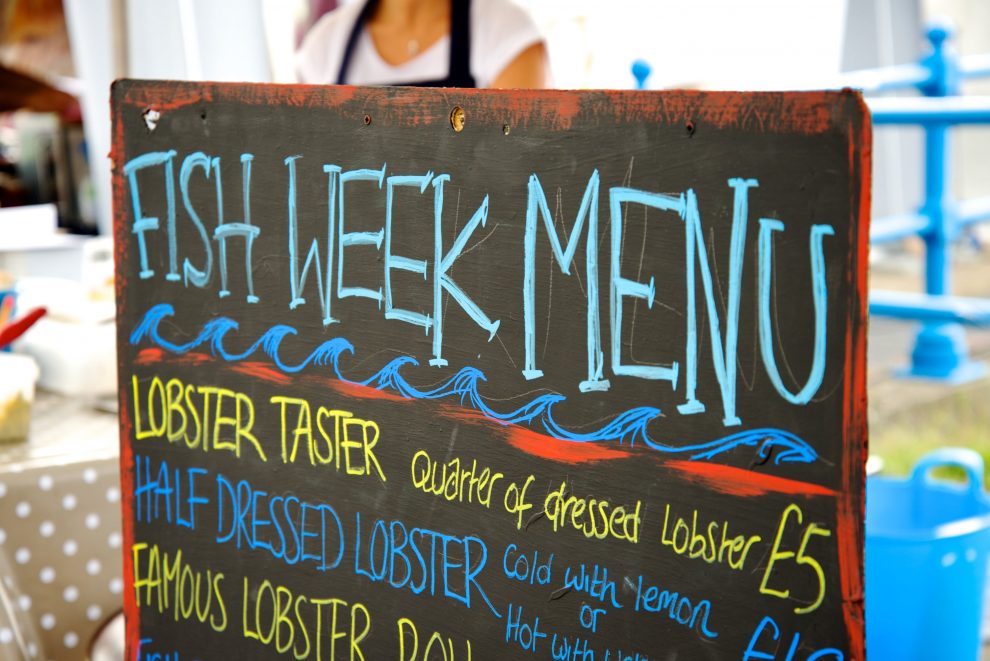 FISH WEEK MENU
LOBSTER TASTER Quarter of dressed Lobster £5
HALF DRESSED LOBSTER Cold with lemon
or
Hot with
FAMOUS LOBSTER